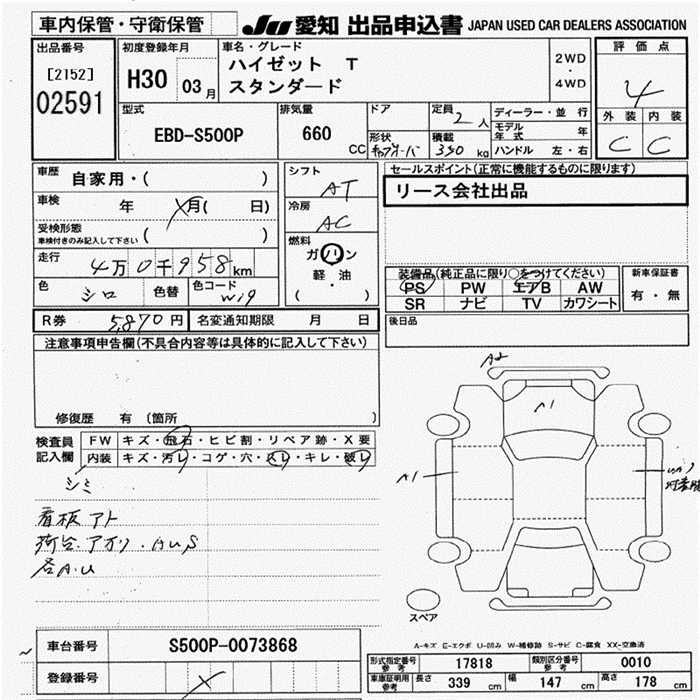 車内保管・守衛保管
JU 愛知 出品申込書 JAPAN USED CAR DEALERS ASSOCIATION
出品番号
[2152]
02591
初度登録年月
H30 03月
車名・グレード
ハイゼット T
スタンダード
2WD
・
4WD
評価点
4
外装 内装
C C
型式
EBD-S500P
排気量
660
CC
ドア
形状
定員
2人
積載
350 kg
ディーラー・並行
モデル年式 年
ハンドル 左・右
車歴
自家用・( )
車検 年 月( 日)
受検形態
車検付きのみ記入して下さい ( )
走行
4万0千958km
色
シロ
色替
色コード
W19
シフト
AT
冷房
AC
燃料
ガソリン
軽・油
( )
セールスポイント(正常に機能するものに限ります)
リース会社出品
装備品(純正品に限り○をつけてください)
PS PW エアB AW
SR ナビ TV カワシート
新車保証書
有・無
後日品
R券 5,870円
名変通知期限 月 日
注意事項申告欄(不具合内容等は具体的に記入して下さい)
修復歴 有 (箇所 )
検査員
記入欄
FW キズ・飛石・ヒビ割・リペア跡・X要
内装 キズ・汚レ・コゲ・穴・スレ・キレ・破レ
シミ
看板アト
荷台.アオリ.AUS
各A.U
A2
A1
A1
スペア
A-キズ E-エクボ U-凹み W-補修跡 S-サビ C-腐食 XX-交換済
車台番号 S500P-0073868
登録番号
型式指定番号
参考
17818
類別区分番号
参考
0010
車庫証明用
参考
長さ 339 cm 幅 147 cm 高さ 178 cm